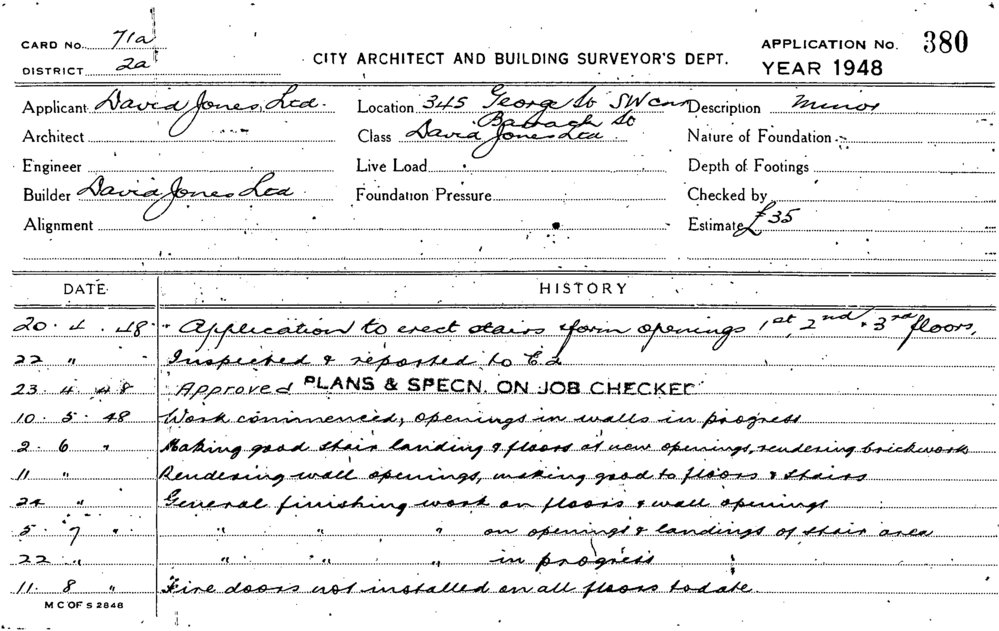 CARD No. 71a
DISTRICT 2a
CITY ARCHITECT AND BUILDING SURVEYOR'S DEPT.
APPLICATION No. 380
YEAR 1948
Applicant David Jones Ltd.
Location 345 George St SW cnr
Barrack St
Description Minor
Architect
Class David Jones Ltd
Nature of Foundation
Engineer
Live Load
Depth of Footings
Builder David Jones Ltd
Foundation Pressure
Checked by
Alignment
Estimate £35
DATE HISTORY
20 . 4 . 48 Application to erect stairs & form openings 1st, 2nd & 3rd floors,
22 " Inspected & reported to
23 . 4 . 48 Approved PLANS & SPECN. ON JOB CHECKED
10 . 5 . 48 Work commenced, openings in walls in progress
2 . 6 " Making good stair landing & floors at new openings, rendering brickwork
11 " Rendering wall openings, making good to floors & stairs
24 " General finishing work on floors & wall openings
5 . 7 " " " " on openings & landings of stair area
22 " " " " in progress
11 . 8 " Fire doors not installed on all floors to date.
M C OF S 2848